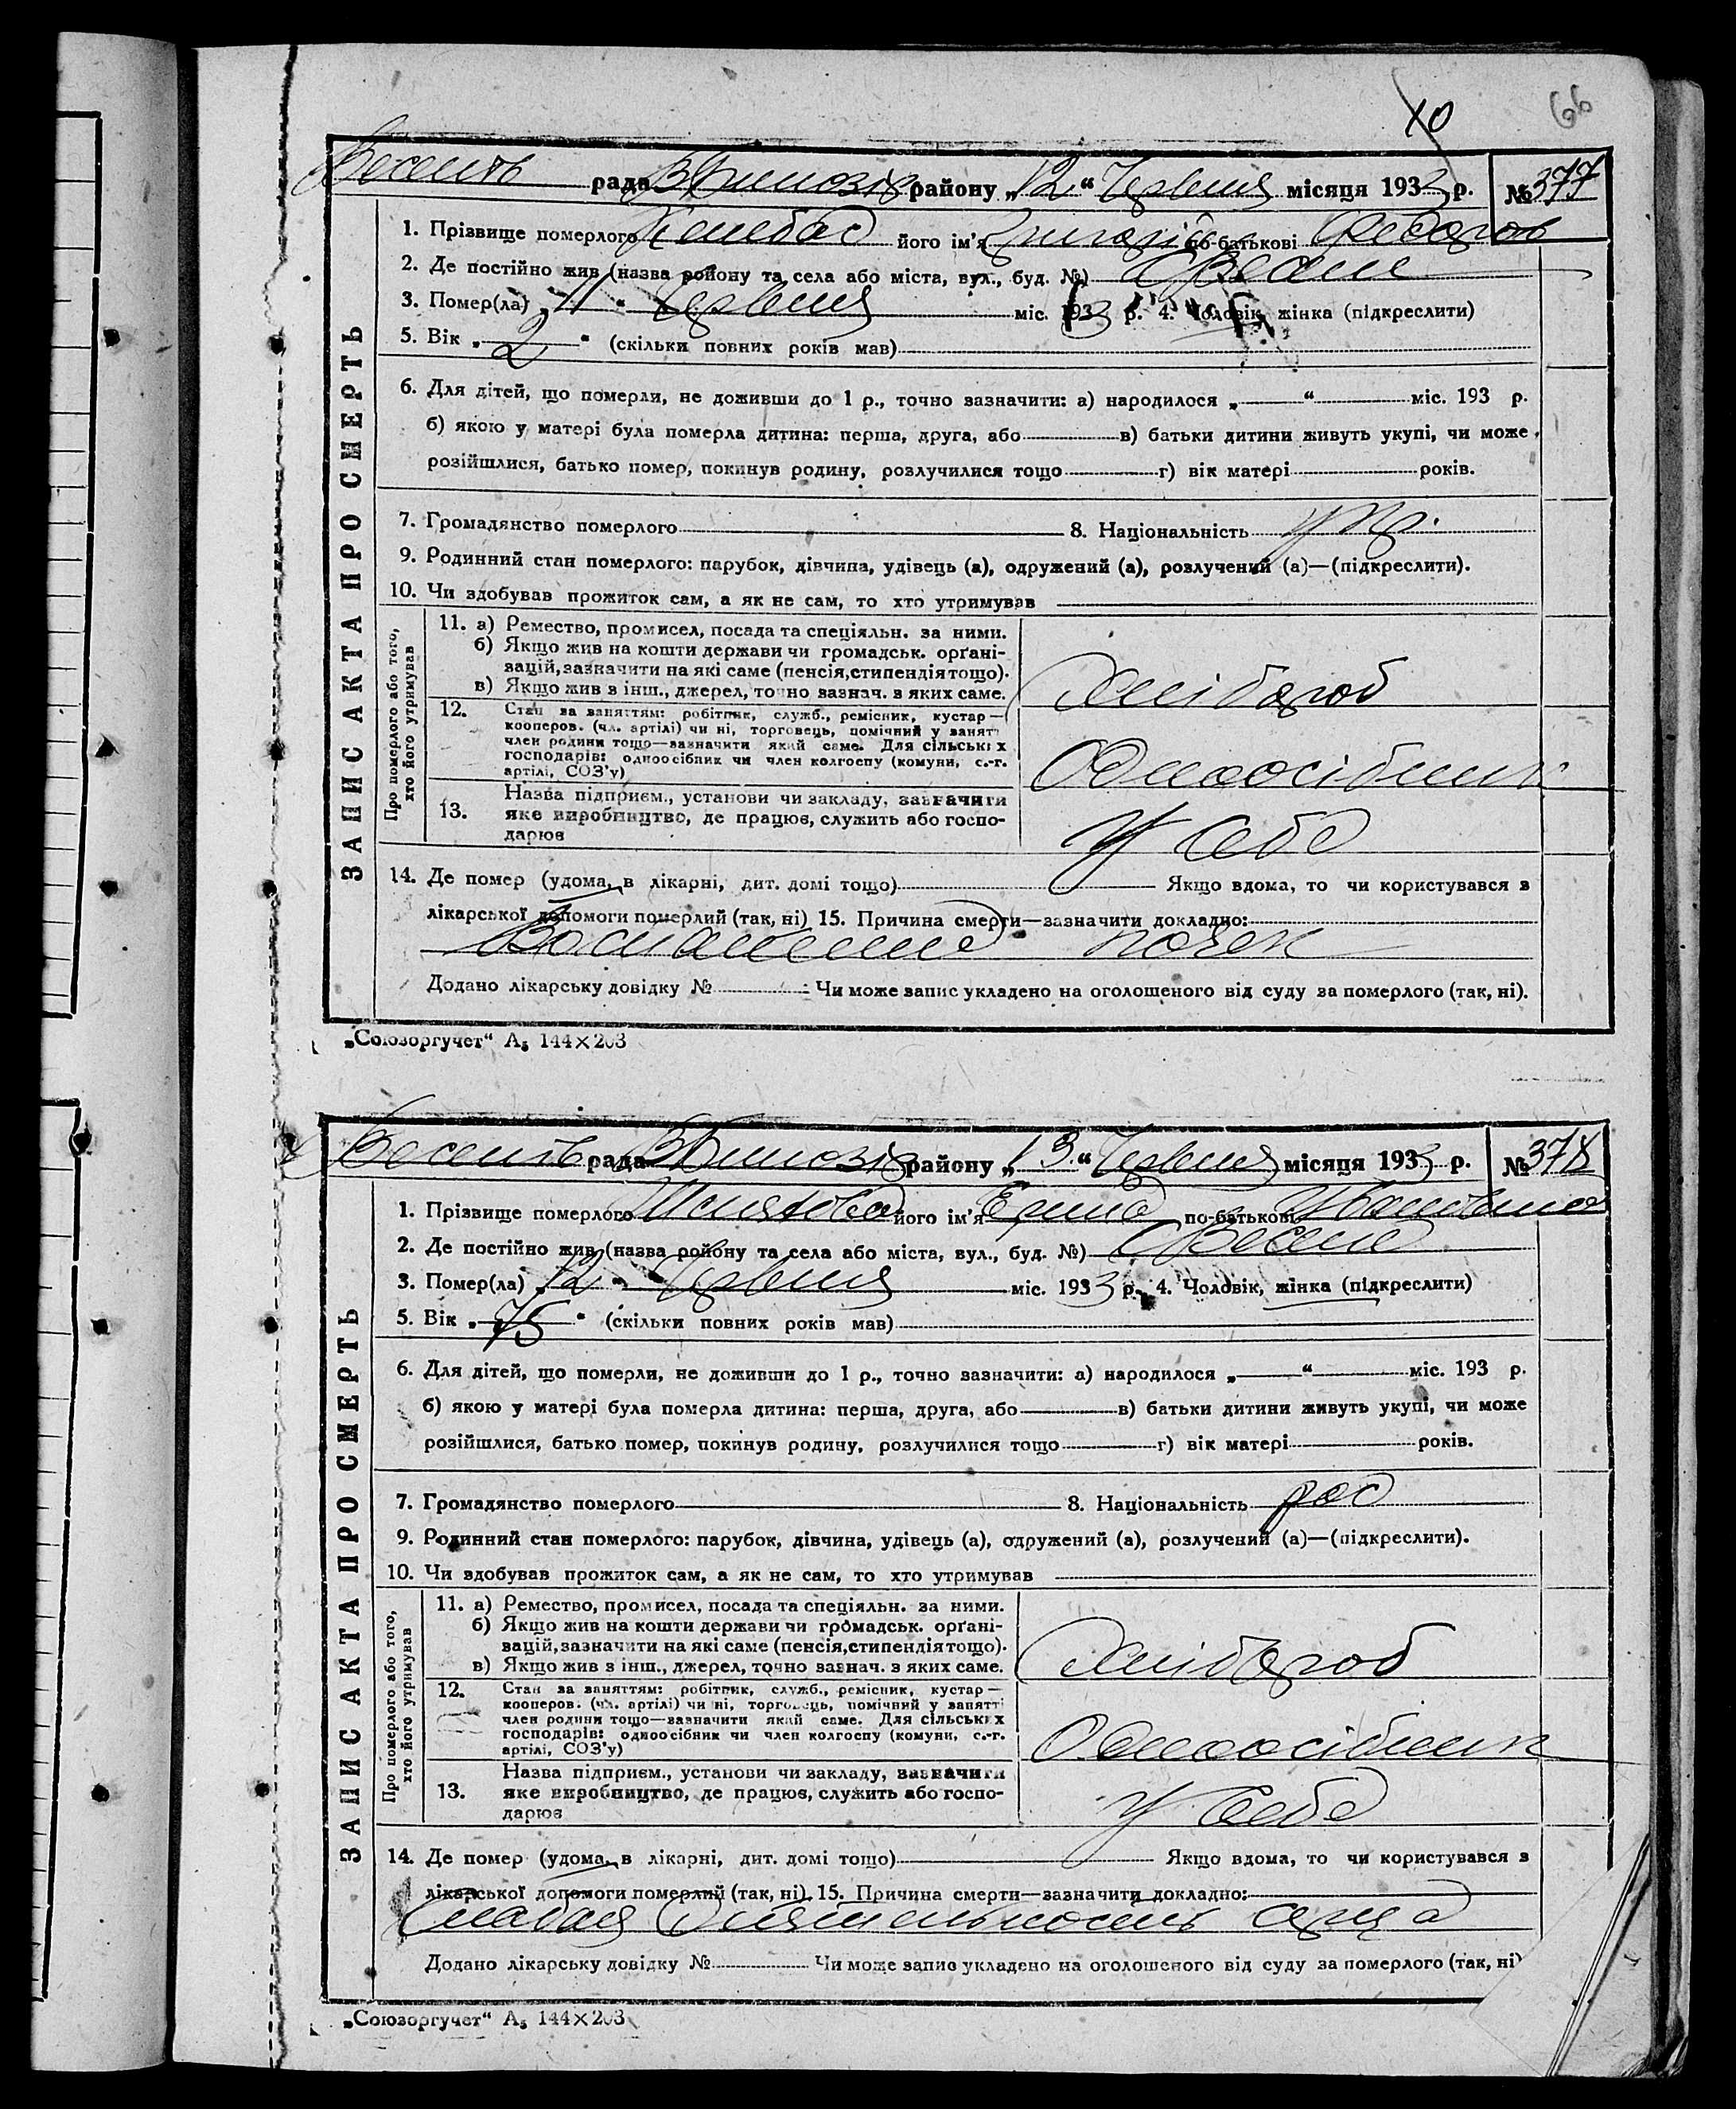 10 66
рада району „12“ Червня місяця 1933 р. №377
1. Прізвище померлого його ім'я Григорій по-батькові Федоров
2. Де постійно жив (назва району та села або міста, вул., буд. №)
3. Помер(ла) „11“ Червня міс. 1933 р. 4. Чоловік, жінка (підкреслити)
5. Вік „2“ (скільки повних років мав)
6. Для дітей, що померли, не доживши до 1 р., точно зазначити: а) народилося „ “ міс. 193 р.
б) якою у матері була померла дитина: перша, друга, або в) батьки дитини живуть укупі, чи може
розійшлися, батько помер, покинув родину, розлучилися тощо г) вік матері років.
7. Громадянство померлого 8. Національність укр.
9. Родинний стан померлого: парубок, дівчина, удівець (а), одружений (а), розлучений (а)—(підкреслити).
10. Чи здобував прожиток сам, а як не сам, то хто утримував
ЗАПИС АКТА ПРО СМЕРТЬ
Про померлого або того,
хто його утримував
11. а) Ремество, промисел, посада та спеціяльн. за ними.
б) Якщо жив на кошти держави чи громадськ. орґані-
зацій, зазначити на які саме (пенсія, стипендія тощо).
в) Якщо жив з інш., джерел, точно зазнач. з яких саме.
Хлібороб
12. Стан за заняттям: робітник, служб., ремісник, кустар—
кооперов. (чл. артілі) чи ні, торговець, помічний у занятті
член родини тощо—зазначити який саме. Для сільських
господарів: одноосібник чи член колгоспу (комуни, с.-г.
артілі, СОЗ'у)
Одноосібник
13. Назва підприєм., установи чи закладу, зазначити
яке виробництво, де працює, служить або госпо-
дарює
У себе
14. Де помер (удома, в лікарні, дит. домі тощо) Якщо вдома, то чи користувався з
лікарської допомоги померлий (так, ні) 15. Причина смерти—зазначити докладно:
Воспаление почек
Додано лікарську довідку № Чи може запис укладено на оголошеного від суду за померлого (так, ні).
„Союзоргучет“ А5 144×203
рада району „13“ Червня місяця 1933 р. №378
1. Прізвище померлого його ім'я по-батькові Ивановна
2. Де постійно жив (назва району та села або міста, вул., буд. №)
3. Помер(ла) „12“ Червня міс. 1933 р. 4. Чоловік, жінка (підкреслити)
5. Вік „75“ (скільки повних років мав)
6. Для дітей, що померли, не доживши до 1 р., точно зазначити: а) народилося „ “ міс. 193 р.
б) якою у матері була померла дитина: перша, друга, або в) батьки дитини живуть укупі, чи може
розійшлися, батько помер, покинув родину, розлучилися тощо г) вік матері років.
7. Громадянство померлого 8. Національність рос
9. Родинний стан померлого: парубок, дівчина, удівець (а), одружений (а), розлучений (а)—(підкреслити).
10. Чи здобував прожиток сам, а як не сам, то хто утримував
ЗАПИС АКТА ПРО СМЕРТЬ
Про померлого або того,
хто його утримував
11. а) Ремество, промисел, посада та спеціяльн. за ними.
б) Якщо жив на кошти держави чи громадськ. орґані-
зацій, зазначити на які саме (пенсія, стипендія тощо).
в) Якщо жив з інш., джерел, точно зазнач. з яких саме.
Хлібороб
12. Стан за заняттям: робітник, служб., ремісник, кустар—
кооперов. (чл. артілі) чи ні, торговець, помічний у занятті
член родини тощо—зазначити який саме. Для сільських
господарів: одноосібник чи член колгоспу (комуни, с.-г.
артілі, СОЗ'у)
Одноосібник
13. Назва підприєм., установи чи закладу, зазначити
яке виробництво, де працює, служить або госпо-
дарює
У себе
14. Де помер (удома, в лікарні, дит. домі тощо) Якщо вдома, то чи користувався з
лікарської допомоги померлий (так, ні) 15. Причина смерти—зазначити докладно:
Слабая деятельность серца
Додано лікарську довідку № Чи може запис укладено на оголошеного від суду за померлого (так, ні)
„Союзоргучет“ А5 144×203